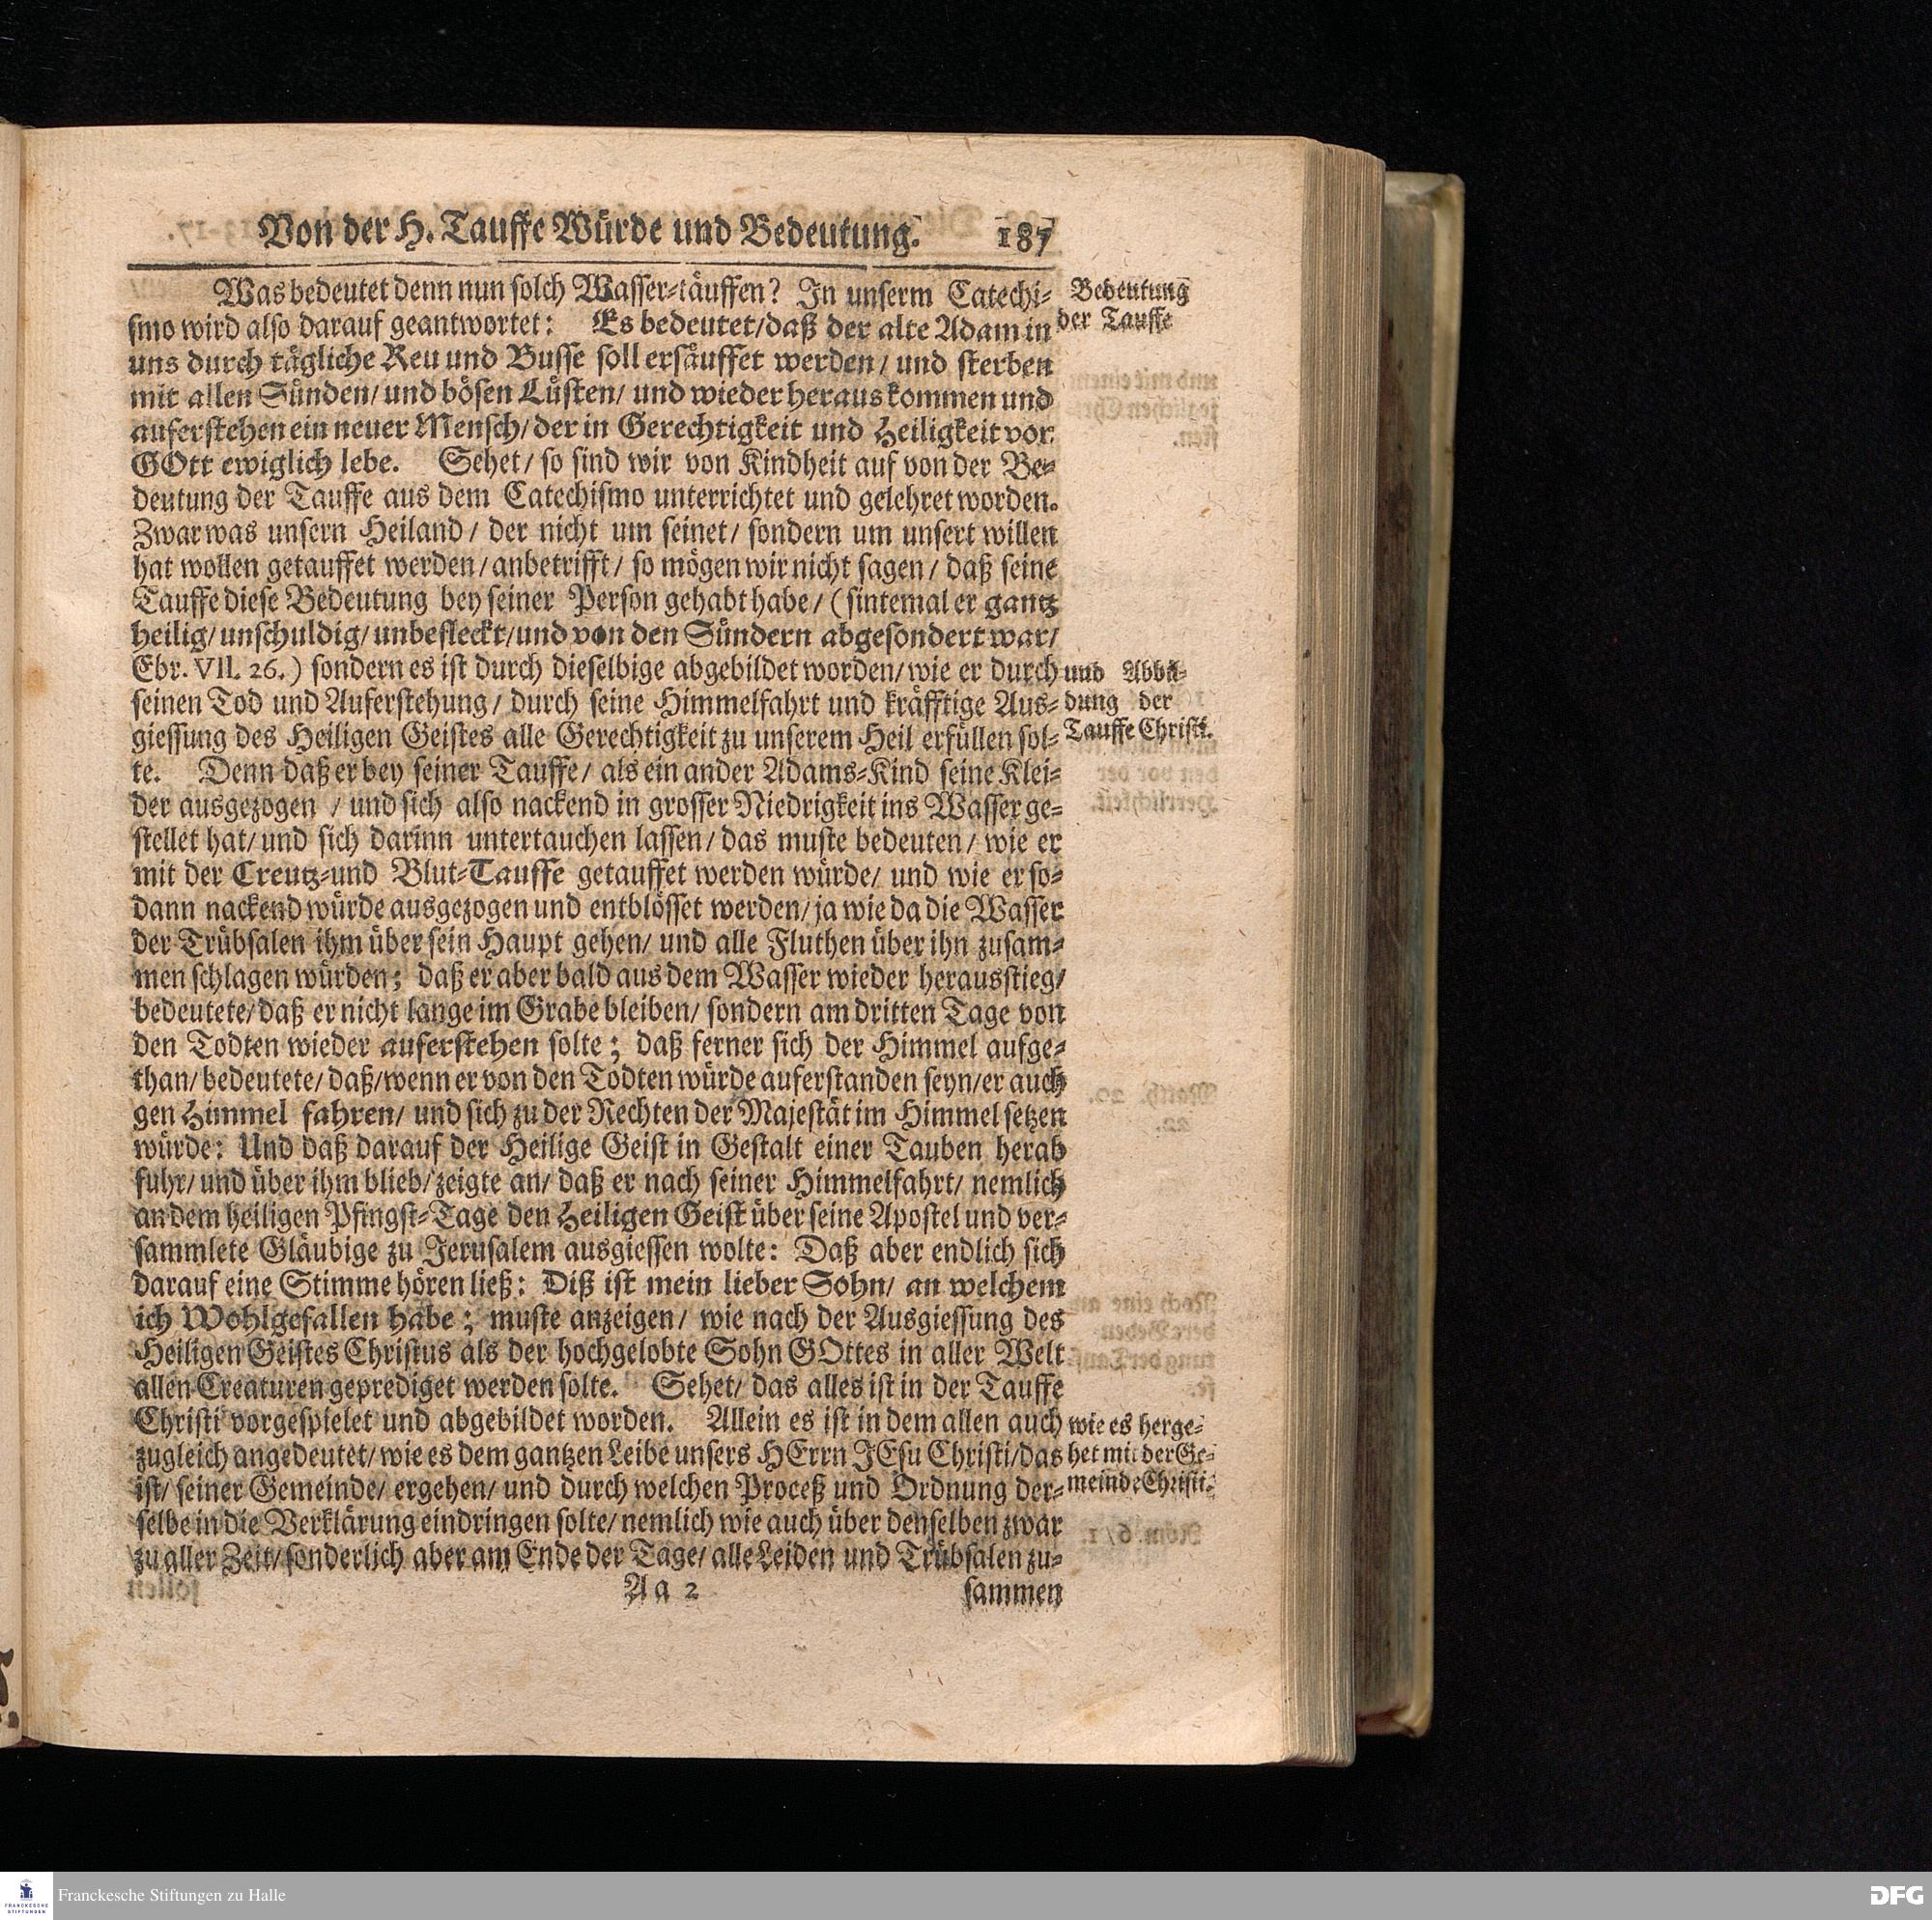 Von der H. Tauffe Würde und Bedeutung. 187
Was bedeutet denn nun solch Wasser-täuffen? In unserm Catechi-
smo wird also darauf geantwortet: Es bedeutet/daß der alte Adam in
uns durch tägliche Reu und Busse soll ersäuffet werden/ und sterben
mit allen Sünden/ und bösen Lüsten/ und wieder heraus kommen und
auferstehen ein neuer Mensch/ der in Gerechtigkeit und Heiligkeit vor
GOtt ewiglich lebe. Sehet/ so sind wir von Kindheit auf von der Be-
deutung der Tauffe aus dem Catechismo unterrichtet und gelehret worden.
Zwar was unsern Heiland/ der nicht um seinet/ sondern um unsert willen
hat wollen getauffet werden/ anbetrifft/ so mögen wir nicht sagen/ daß seine
Tauffe diese Bedeutung bey seiner Person gehabt habe/ (sintemal er gantz
heilig/ unschuldig/ unbefleckt/ und von den Sündern abgesondert war/
Ebr. VII. 26.) sondern es ist durch dieselbige abgebildet worden/ wie er durch
seinen Tod und Auferstehung/ durch seine Himmelfahrt und kräfftige Aus-
giessung des Heiligen Geistes alle Gerechtigkeit zu unserem Heil erfüllen sol-
te. Denn daß er bey seiner Tauffe/ als ein ander Adams-Kind seine Klei-
der ausgezogen / und sich also nackend in grosser Niedrigkeit ins Wasser ge-
stellet hat/ und sich darinn untertauchen lassen/ das muste bedeuten/ wie er
mit der Creutz-und Blut-Tauffe getauffet werden würde/ und wie er so-
dann nackend würde ausgezogen und entblösset werden/ ja wie da die Wasser
der Trübsalen ihm über sein Haupt gehen/ und alle Fluthen über ihn zusam-
men schlagen würden; daß er aber bald aus dem Wasser wieder herausstieg/
bedeutete/ daß er nicht lange im Grabe bleiben/ sondern am dritten Tage von
den Todten wieder auferstehen solte; daß ferner sich der Himmel aufge-
than/ bedeutete/ daß/ wenn er von den Todten würde auferstanden seyn/ er auch
gen Himmel fahren/ und sich zu der Rechten der Majestät im Himmel setzen
würde: Und daß darauf der Heilige Geist in Gestalt einer Tauben herab
fuhr/ und über ihm blieb/ zeigte an/ daß er nach seiner Himmelfahrt/ nemlich
an dem heiligen Pfingst-Tage den Heiligen Geist über seine Apostel und ver-
sammlete Gläubige zu Jerusalem ausgiessen wolte: Daß aber endlich sich
darauf eine Stimme hören ließ: Diß ist mein lieber Sohn/ an welchem
ich Wohlgefallen habe; muste anzeigen/ wie nach der Ausgiessung des
Heiligen Geistes Christus als der hochgelobte Sohn GOttes in aller Welt
allen Creaturen geprediget werden solte. Sehet/ das alles ist in der Tauffe
Christi vorgespielet und abgebildet worden. Allein es ist in dem allen auch
zugleich angedeutet/ wie es dem gantzen Leibe unsers HErrn JEsu Christi/ das
ist/ seiner Gemeinde/ ergehen/ und durch welchen Proceß und Ordnung der-
selbe in die Verklärung eindringen solte/ nemlich wie auch über denselben zwar
zu aller Zeit/ sonderlich aber am Ende der Tage/ alle Leiden und Trübsalen zu-
Aa 2 sammen
Bedeutung
der Tauffe
und Abbil-
dung der
Tauffe Christi.
wie es herge-
het mit der Ge-
meinde Christi.
Franckesche Stiftungen zu Halle
FRANCKESCHE
STIFTUNGEN
DFG